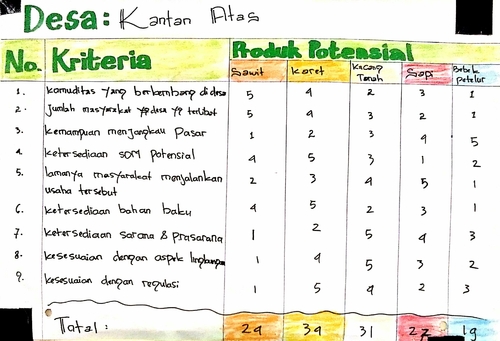 Desa: Kantan Atas
No. Kriteria Produk Potensial
Sawit Karet Kacang Tanah Sapi Bebek petelur
1. komoditas yang berkembang di desa 5 4 2 3 1
2. Jumlah masyarakat yg desa yg terlibat 5 4 3 2 1
3. Kemampuan menjangkau Pasar 1 2 3 4 5
4. ketersediaan SDM Potensial 4 5 3 1 2
5. lamanya masyarakat menjalankan usaha tersebut 2 3 4 5 1
6. ketersediaan bahan baku 4 5 2 3 1
7. ketersediaan sarana & prasarana 1 2 5 4 3
8. kesesuaian dengan aspek lingkungan 1 4 5 3 2
9. kesesuaian dengan regulasi 1 5 4 2 3
Total : 24 34 31 27 19